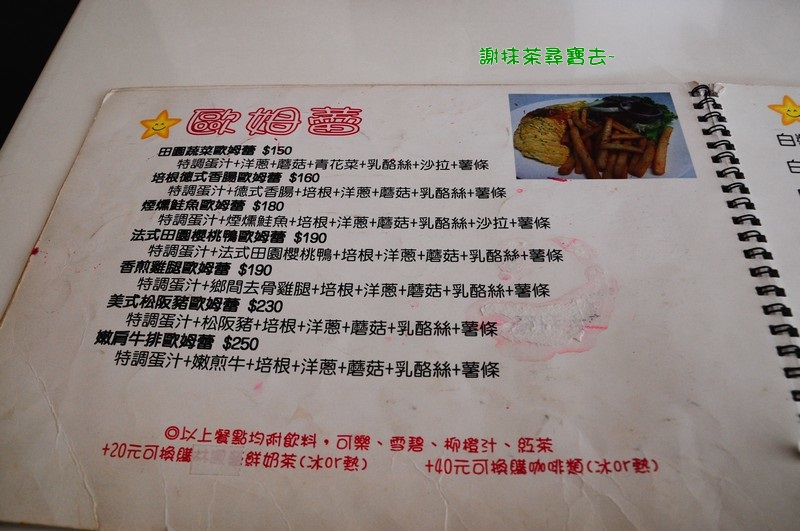 謝抹茶尋寶去~
歐姆蕾
田園蔬菜歐姆蕾 $150
特調蛋汁+洋蔥+蘑菇+青花菜+乳酪絲+沙拉+薯條
培根德式香腸歐姆蕾 $160
特調蛋汁+德式香腸+培根+洋蔥+蘑菇+乳酪絲+薯條
煙燻鮭魚歐姆蕾 $180
特調蛋汁+煙燻鮭魚+培根+洋蔥+蘑菇+乳酪絲+沙拉+薯條
法式田園櫻桃鴨歐姆蕾 $190
特調蛋汁+法式田園櫻桃鴨+培根+洋蔥+蘑菇+乳酪絲+薯條
香煎雞腿歐姆蕾 $190
特調蛋汁+鄉間去骨雞腿+培根+洋蔥+蘑菇+乳酪絲+薯條
美式松阪豬歐姆蕾 $230
特調蛋汁+松阪豬+培根+洋蔥+蘑菇+乳酪絲+薯條
嫩肩牛排歐姆蕾 $250
特調蛋汁+嫩煎牛+培根+洋蔥+蘑菇+乳酪絲+薯條
◎以上餐點均附飲料，可樂、雪碧、柳橙汁、紅茶
+20元可換購 鮮奶茶(冰or熱) +40元可換購咖啡類(冰or熱)
白
白